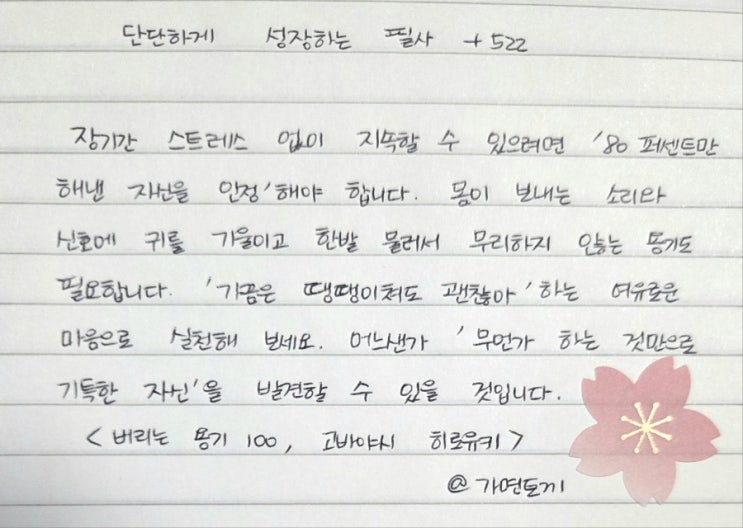 단단하게 성장하는 필사 + 522
장기간 스트레스 없이 지속할 수 있으려면 '80 퍼센트만
해낸 자신을 인정' 해야 합니다. 몸이 보내는 소리와
신호에 귀를 기울이고 한발 물러서 무리하지 않는 용기도
필요합니다. '가끔은 땡땡이쳐도 괜찮아' 하는 여유로운
마음으로 실천해 보세요. 어느샌가 '무언가 하는 것만으로
기특한 자신'을 발견할 수 있을 것입니다.
< 버리는 용기 100, 고바야시 히로유키 >
@ 가연토끼